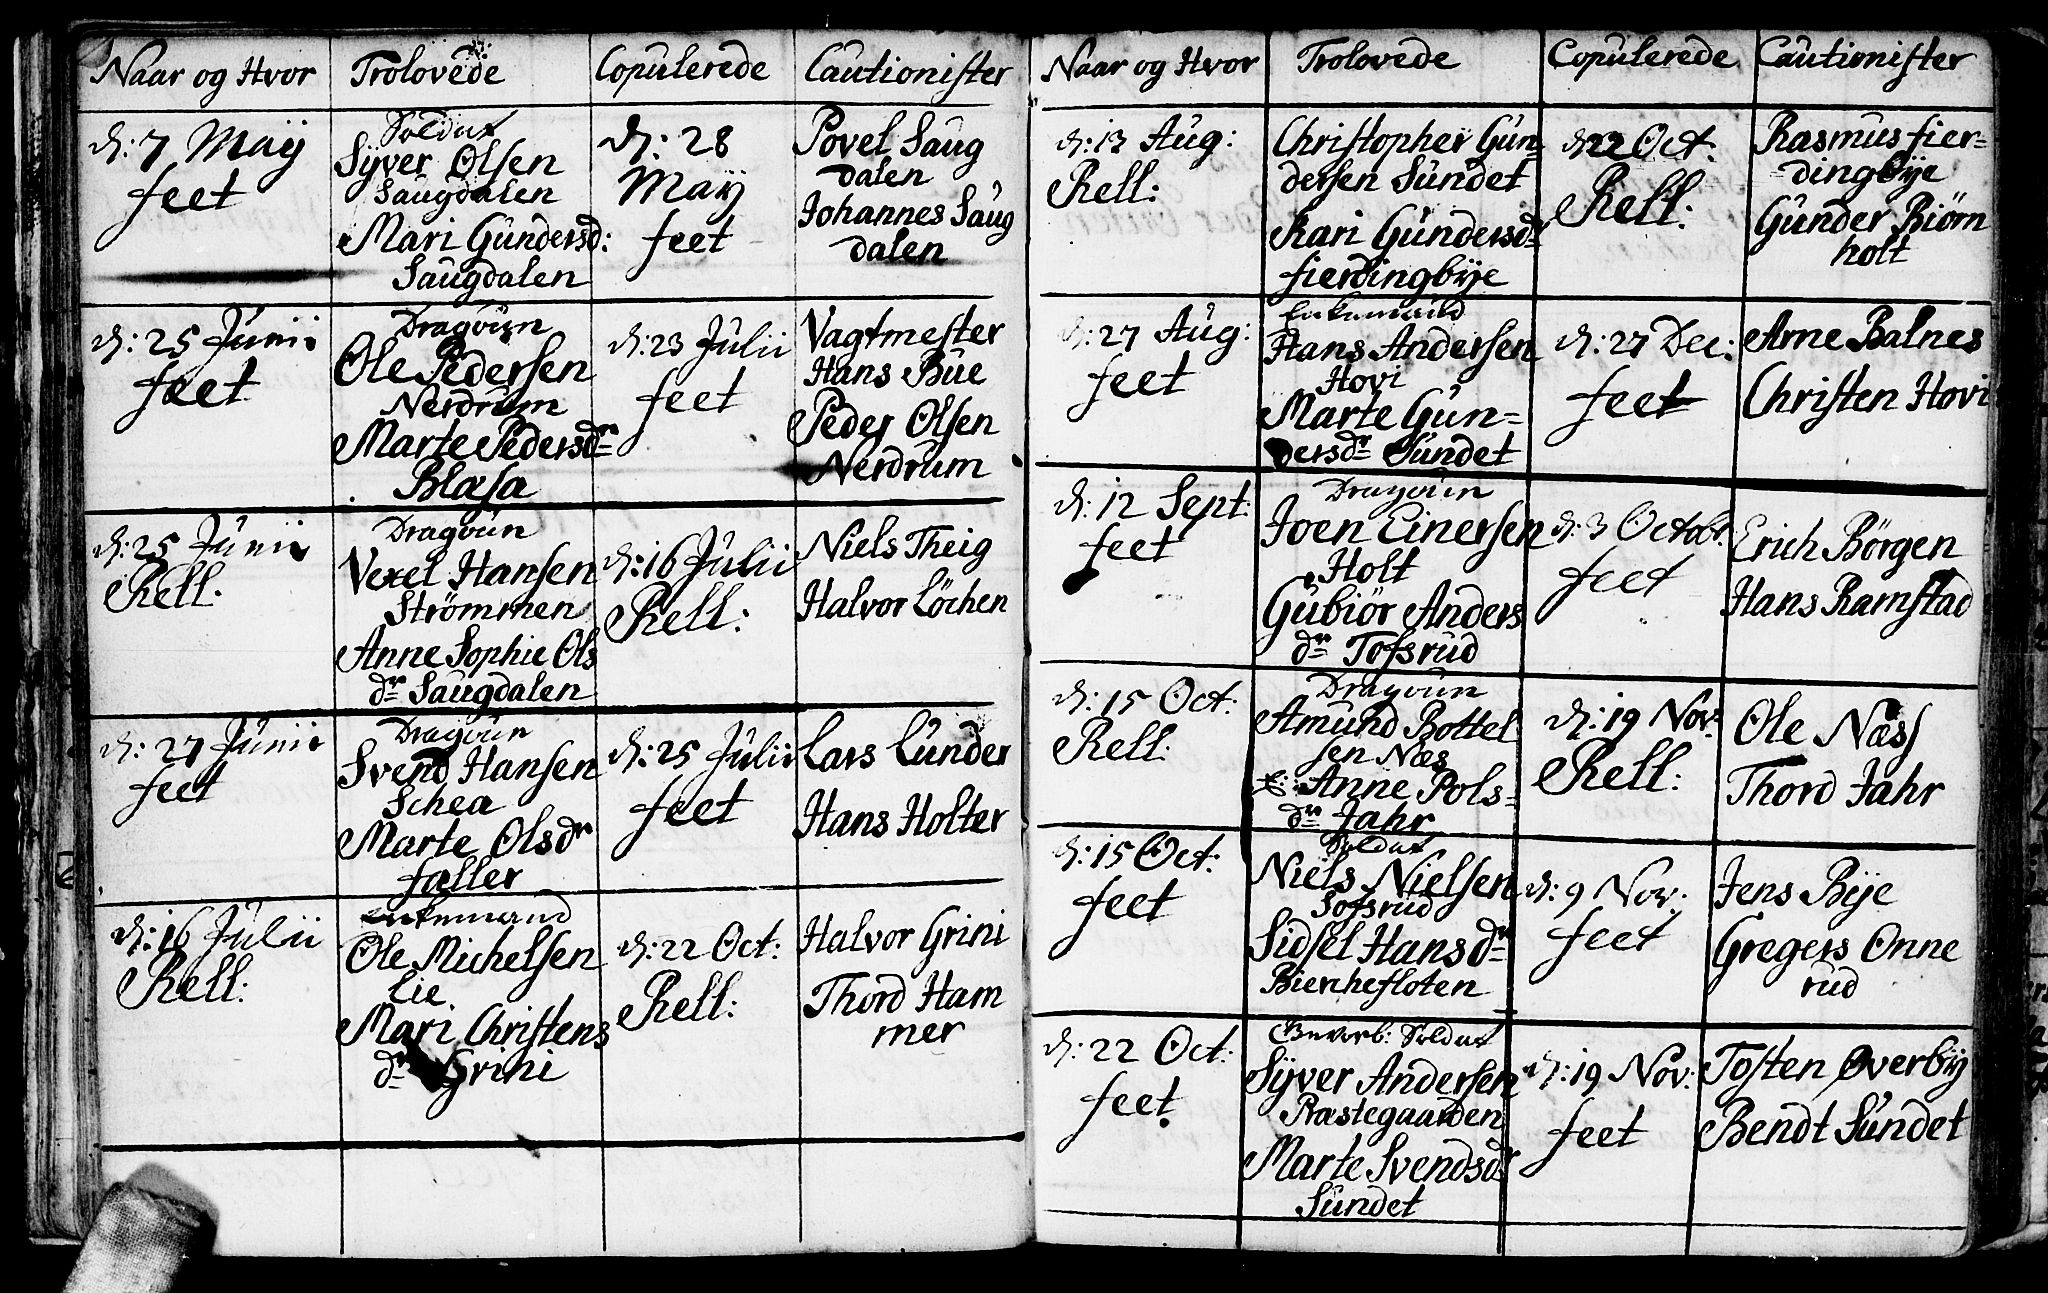 Naar og Hvor Trolovede Copulerede Cautionister
d: 7 Maÿ
feet
Soldat
Sÿver Olsen
Saugdalen
Mari Gundersd:
Saugdalen
d: 28
Maÿ
feet
Povel Saug
dalen
Johannes Saug
dalen
d: 25 Junii
feet
Dragoun
Ole Pedersen
Nerdrum
Marte Pedersdr
Blasa
d: 23 Julii
feet
Vagtmester
Hans Bue
Peder Olsen
Nerdrum
d: 25 Junii
Rell:
Dragoun
Vexel Hansen
Strömmen
Anne Sophie Ols
dr Saugdalen
d: 16 Julii
Rell:
Niels Theig
Halvor Löchen
d: 27 Junii
feet
Dragoun
Svend Hansen
Schea
Marte Olsdr
faller
d: 25 Julii
feet
Lars Lunder
Hans Holter
d: 16 Julii
Rell:
Enkemand
Ole Michelsen
Lie
Mari Christens
dr Grini
d: 22 Oct:
Rell:
Halvor Grini
Thord Ham
mer
Naar og Hvor Trolovede Copulerede Cautionister
d: 13 Aug:
Rell:
Christopher Gun-
dersen Sundet
Kari Gundersdr
fierdingbÿe
d 22 Oct:
Rell:
Rasmus fier-
dingbÿe
Gunder Biörn
holt
d: 27 Aug:
feet
Enkemand
Hans Andersen
Hovi
Marte Gun-
dersdr Sundet
d: 27 Dec:
feet
Arne Balnes
Christen Hovi
d: 12 Sept:
feet
Dragoun
Joen Einersen
Holt
Gubiör Anders
dr Tofsrud
d: 3 Octobr.
feet
Erich Börgen
Hans Ramstad
d: 15 Oct:
Rell:
Dragoun
Amund Bottel
sen Næs
Anne Pols-
dr Jahr
d: 19 Nov:
Rell:
Ole Næss
Thord Jahr
d: 15 Oct:
feet
Soldat
Niels Nielsen
Tofsrud
Sidsel Hansdr
Bierchefloten
d: 9 Nov:
feet
Jens Bÿe
Gregers Onne
rud
d: 22 Oct:
feet
Gevorb: Soldat
Sÿver Andersen
Præstegaarden
Marte Svendsdr
Sundet
d: 19 Nov:
feet
Tosten Overbÿ
Bendt Sundet